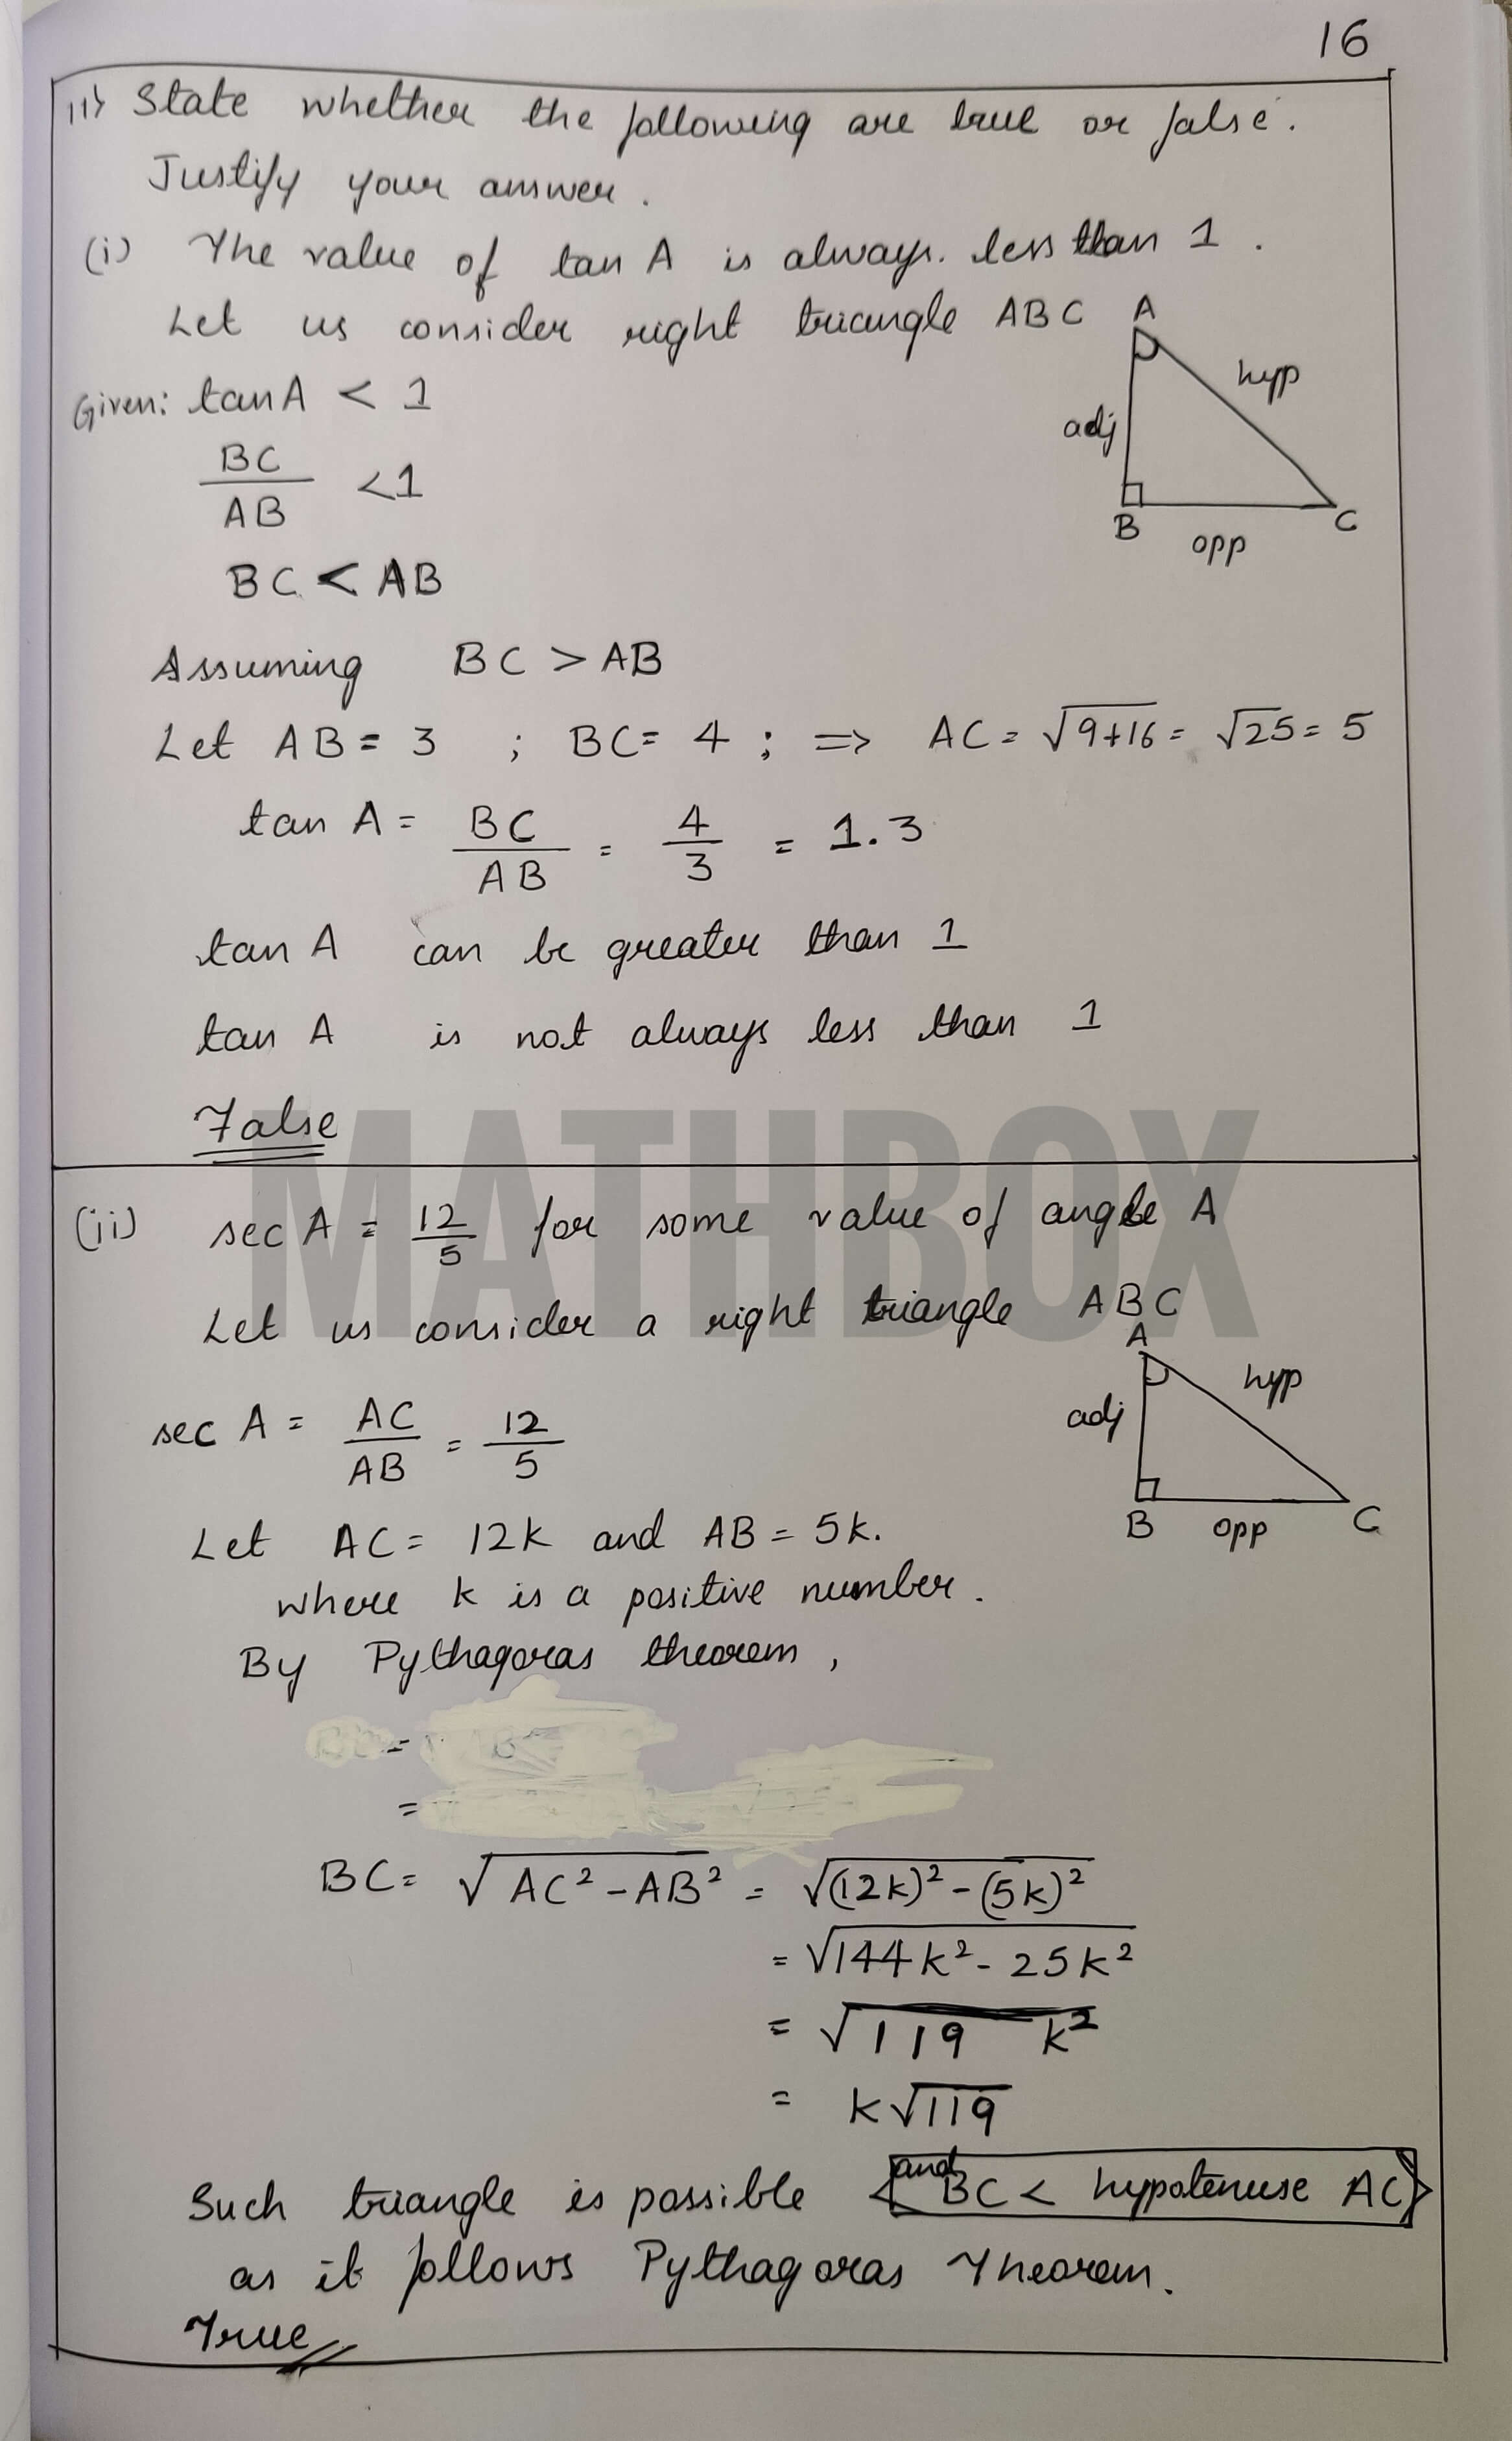 16
11) State whether the following are true or false.
Justify your answer.
(i) The value of tan A is always. less than 1.
Let us consider right triangle ABC
A
hyp
adj
B
opp
C
Given: tan A < 1
BC/AB < 1
BC < AB
Assuming BC > AB
Let AB = 3 ; BC = 4 ; => AC = √9+16 = √25 = 5
tan A = BC/AB = 4/3 = 1.3
tan A can be greater than 1
tan A is not always less than 1
False
MATHBOX
(ii) sec A = 12/5 for some value of angle A
Let us consider a right triangle ABC
A
hyp
adj
B
opp
C
sec A = AC/AB = 12/5
Let AC = 12k and AB = 5k.
where k is a positive number.
By Pythagoras theorem,
=
=
BC = √AC² - AB² = √(12k)² - (5k)²
= √144k² - 25k²
= √119 k²
= k√119
Such triangle is possible {and BC < hypotenuse AC}
as it follows Pythagoras Theorem.
True